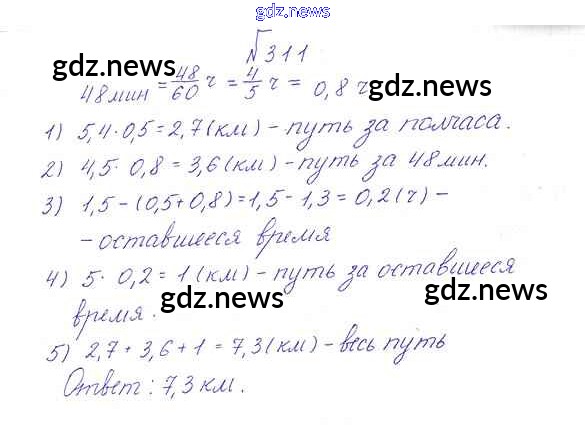 gdz.news
№311
gdz.news
48 мин = 48/60 ч = 4/5 ч = 0,8 ч
gdz.news
1) 5,4·0,5=2,7(км) – путь за полчаса.
2) 4,5·0,8=3,6(км) – путь за 48 мин.
3) 1,5–(0,5+0,8)=1,5–1,3=0,2(ч) –
– оставшееся время
4) 5·0,2=1(км) – путь за оставшееся
gdz.news
gdz.news
время.
5) 2,7+3,6+1=7,3(км) – весь путь
Ответ: 7,3 км.